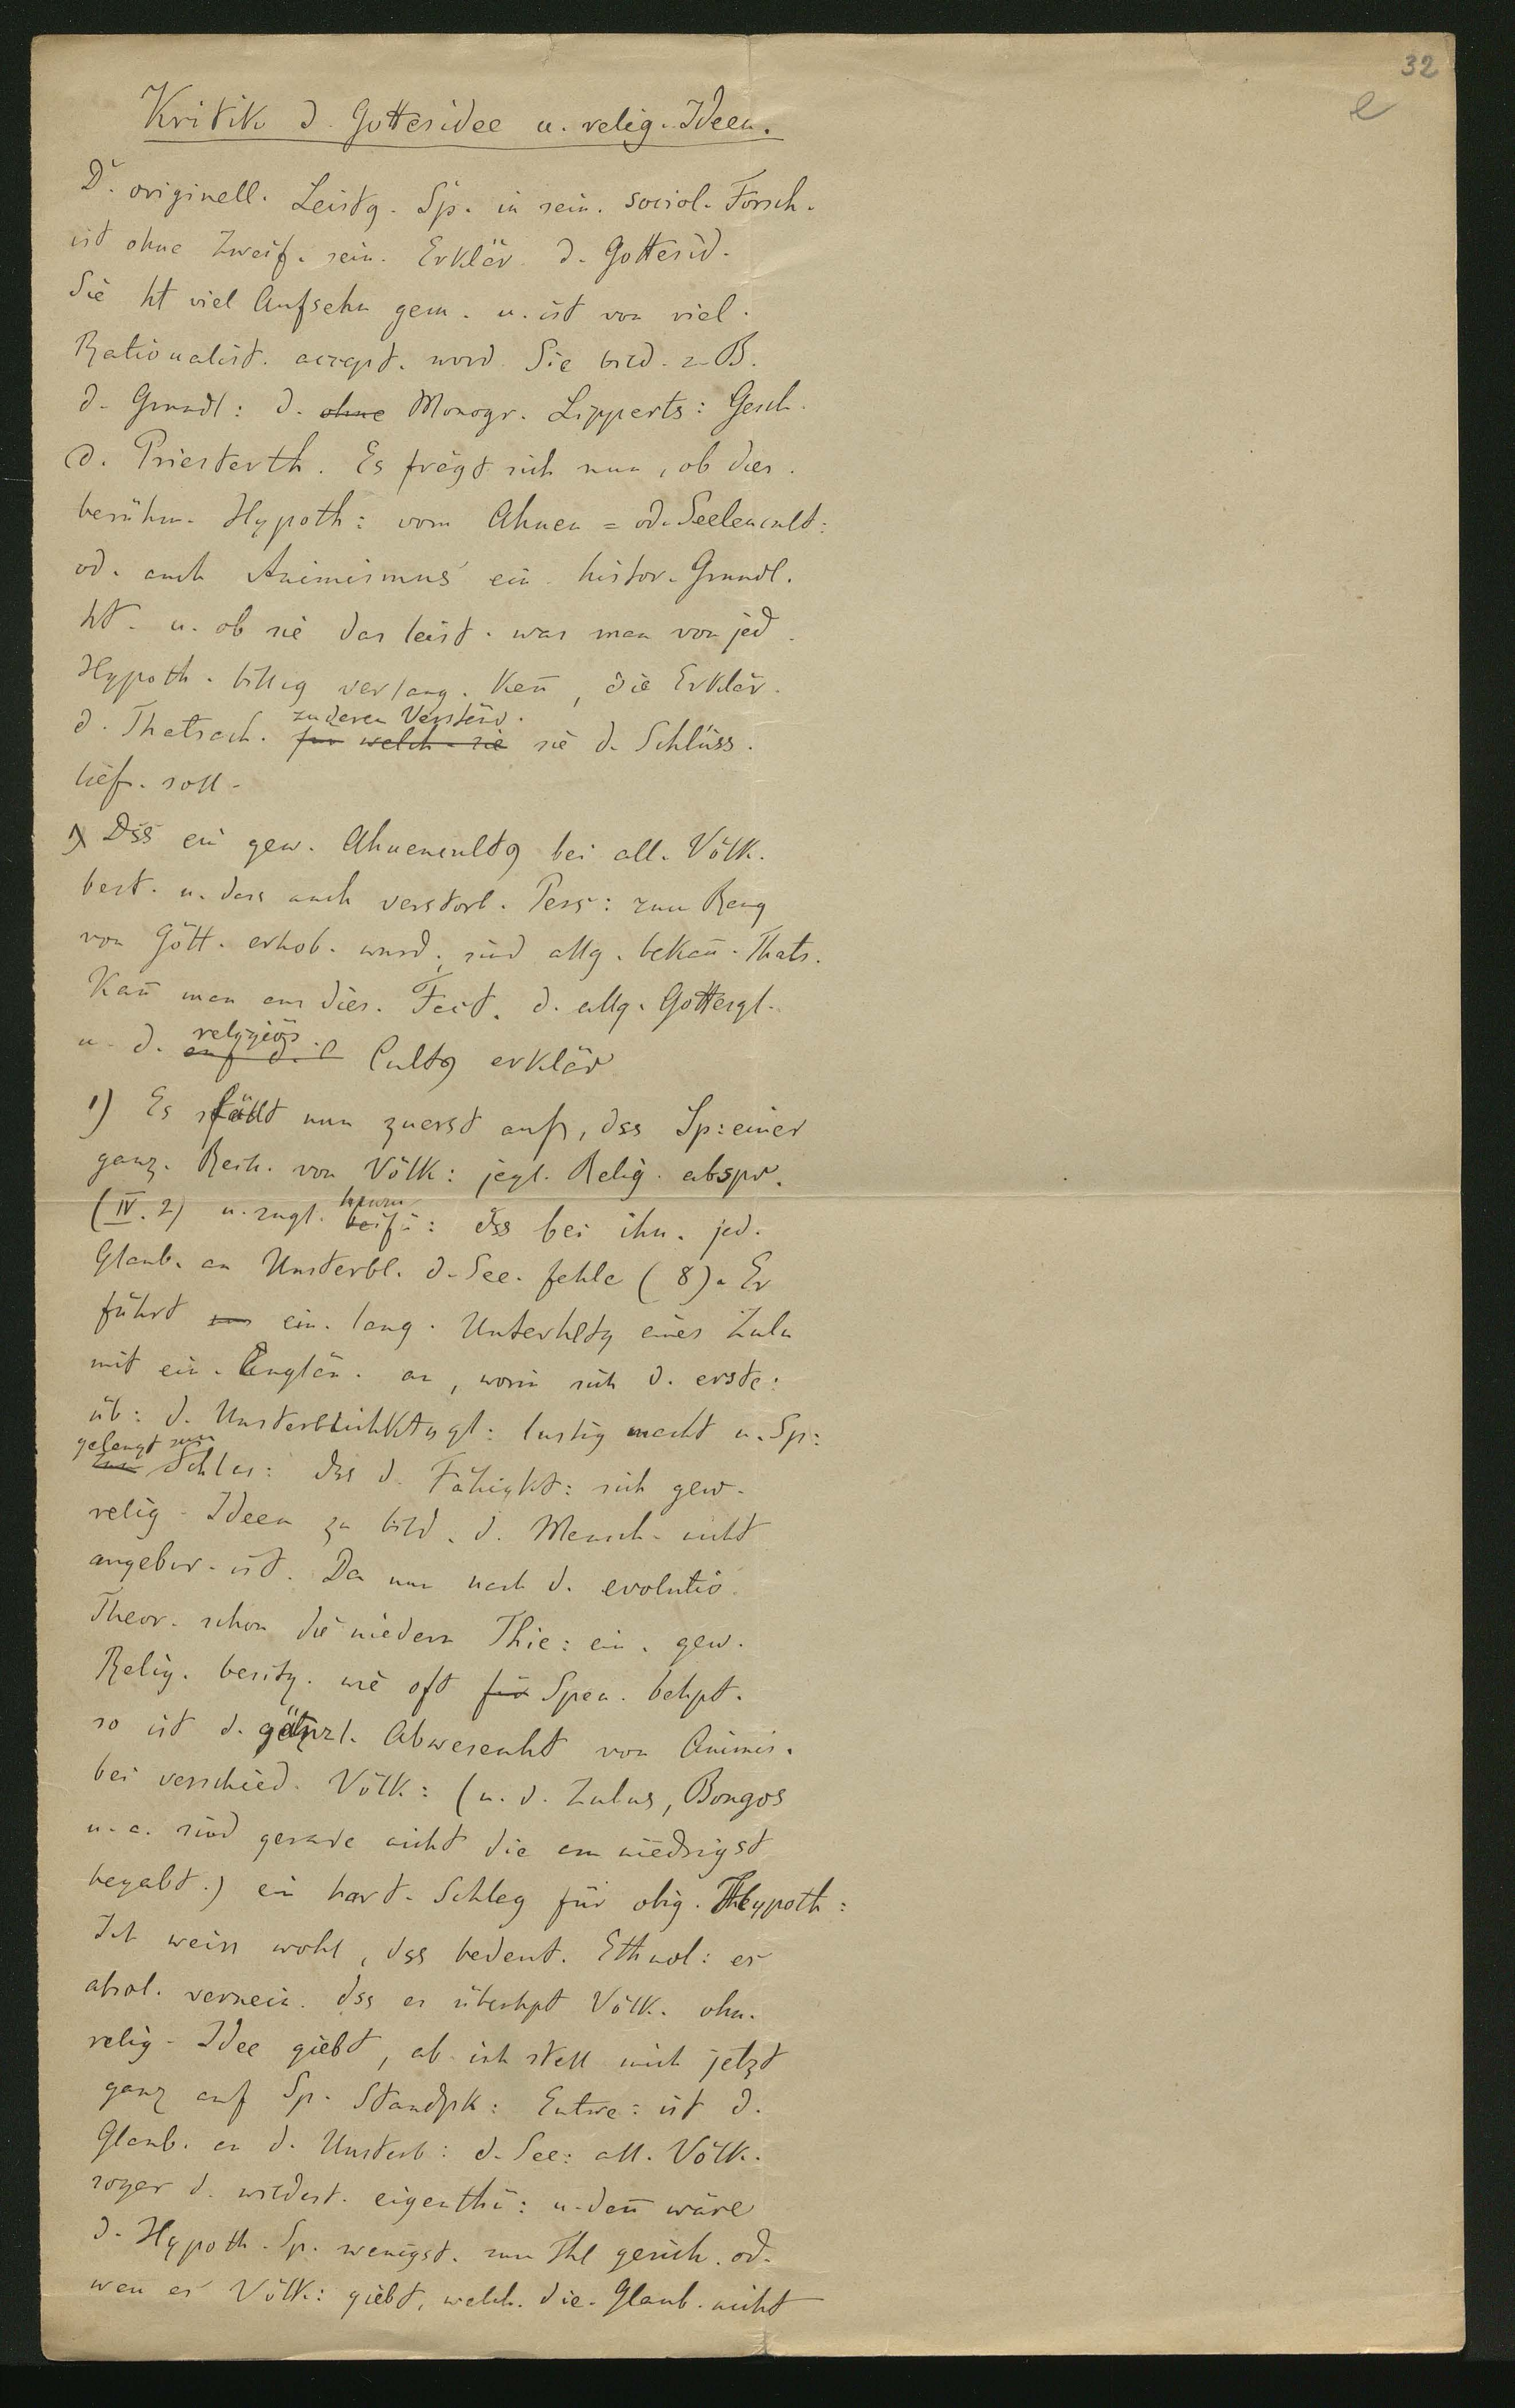 32
e
Kritik d. Gottesidee u. relig. Ideen.
D. originell. Leistg. Sp. in sein. sociol. Forsch.
ist ohne Zweif. sein. Erklär. d. Gottesid.
Sie ht viel Aufsehn gem. u. ist von viel.
Rationalist. accept. word. Sie bild. z. B.
d. Grundl: d. ohne Monogr. Lipperts: Gesch.
d. Priesterth. Es frägt sich nun, ob dies.
berühm. Hypoth: vom Ahnen = od. Seelencult:
od. auch Animismus ein. histor. Grundl.
ht. u. ob sie das leist. was man von jed.
Hypoth. billig verlang. kan̄, die Erklär.
zu deren Verständ.
d. Thatsach. für welch. sie sie d. Schlüss.
lief. soll.
1) Dss ein gew. Ahnencultg bei all. Völk.
best. u. dass auch verstorb. Pers: zum Rang
von Gött. erhob. wurd., sind allg. bekan̄. Thats.
Kan̄ man aus dies. Fact. d. allg. Gottesgl.
religiös
u. d. Cultg erklär
1) Es fällt nun zuerst auf, dss Sp: einer
ganz. Reih. von Völk: jegl. Relig. abspr.
(IV. 2) u. zugl. : dss bei ihn. jed.
Glaub. an Unsterbl. d. See. fehle (8). Er
führt ein. lang. Unterhltg eines Zulu
mit ein. Englän. an, worin sich d. erste:
üb: d. Unsterblichktsgl: lustig macht u. Sp:
gelangt zum
Schlus: dss d. Fähigkt: sich gew.
relig. Ideen zu bild. d. Mensch. nicht
angebor. ist. Da nun nach d. evolutio.
Theor. schon die niedern Thie: ein. gew.
Relig. besitz. wie oft Spen. behpt.
so ist d. gänzl. Abwesenht von Animis.
bei verschied. Völk: (u. d. Zulus, Bongos
u. a. sind gerade nicht die am niedrigst
begabt.) ein hart. Schlag für obig. Hypoth:
Ich weiss wohl, dss bedeut. Ethnol: es
absol. vernein. dss es überhpt Völk. ohn.
relig. Idee giebt, ab. ich stell mich jetzt
ganz auf Sp. Standpk: Entwe: ist d.
Glaub. an d. Unsterb: d. See: all. Völk.
sogar d. wildest. eigenthü: u. dan̄ wäre
d. Hypoth. Sp. wenigst. zum Thl gesich. od.
wen̄ es Völk: giebt, welch. die. Glaub. nicht